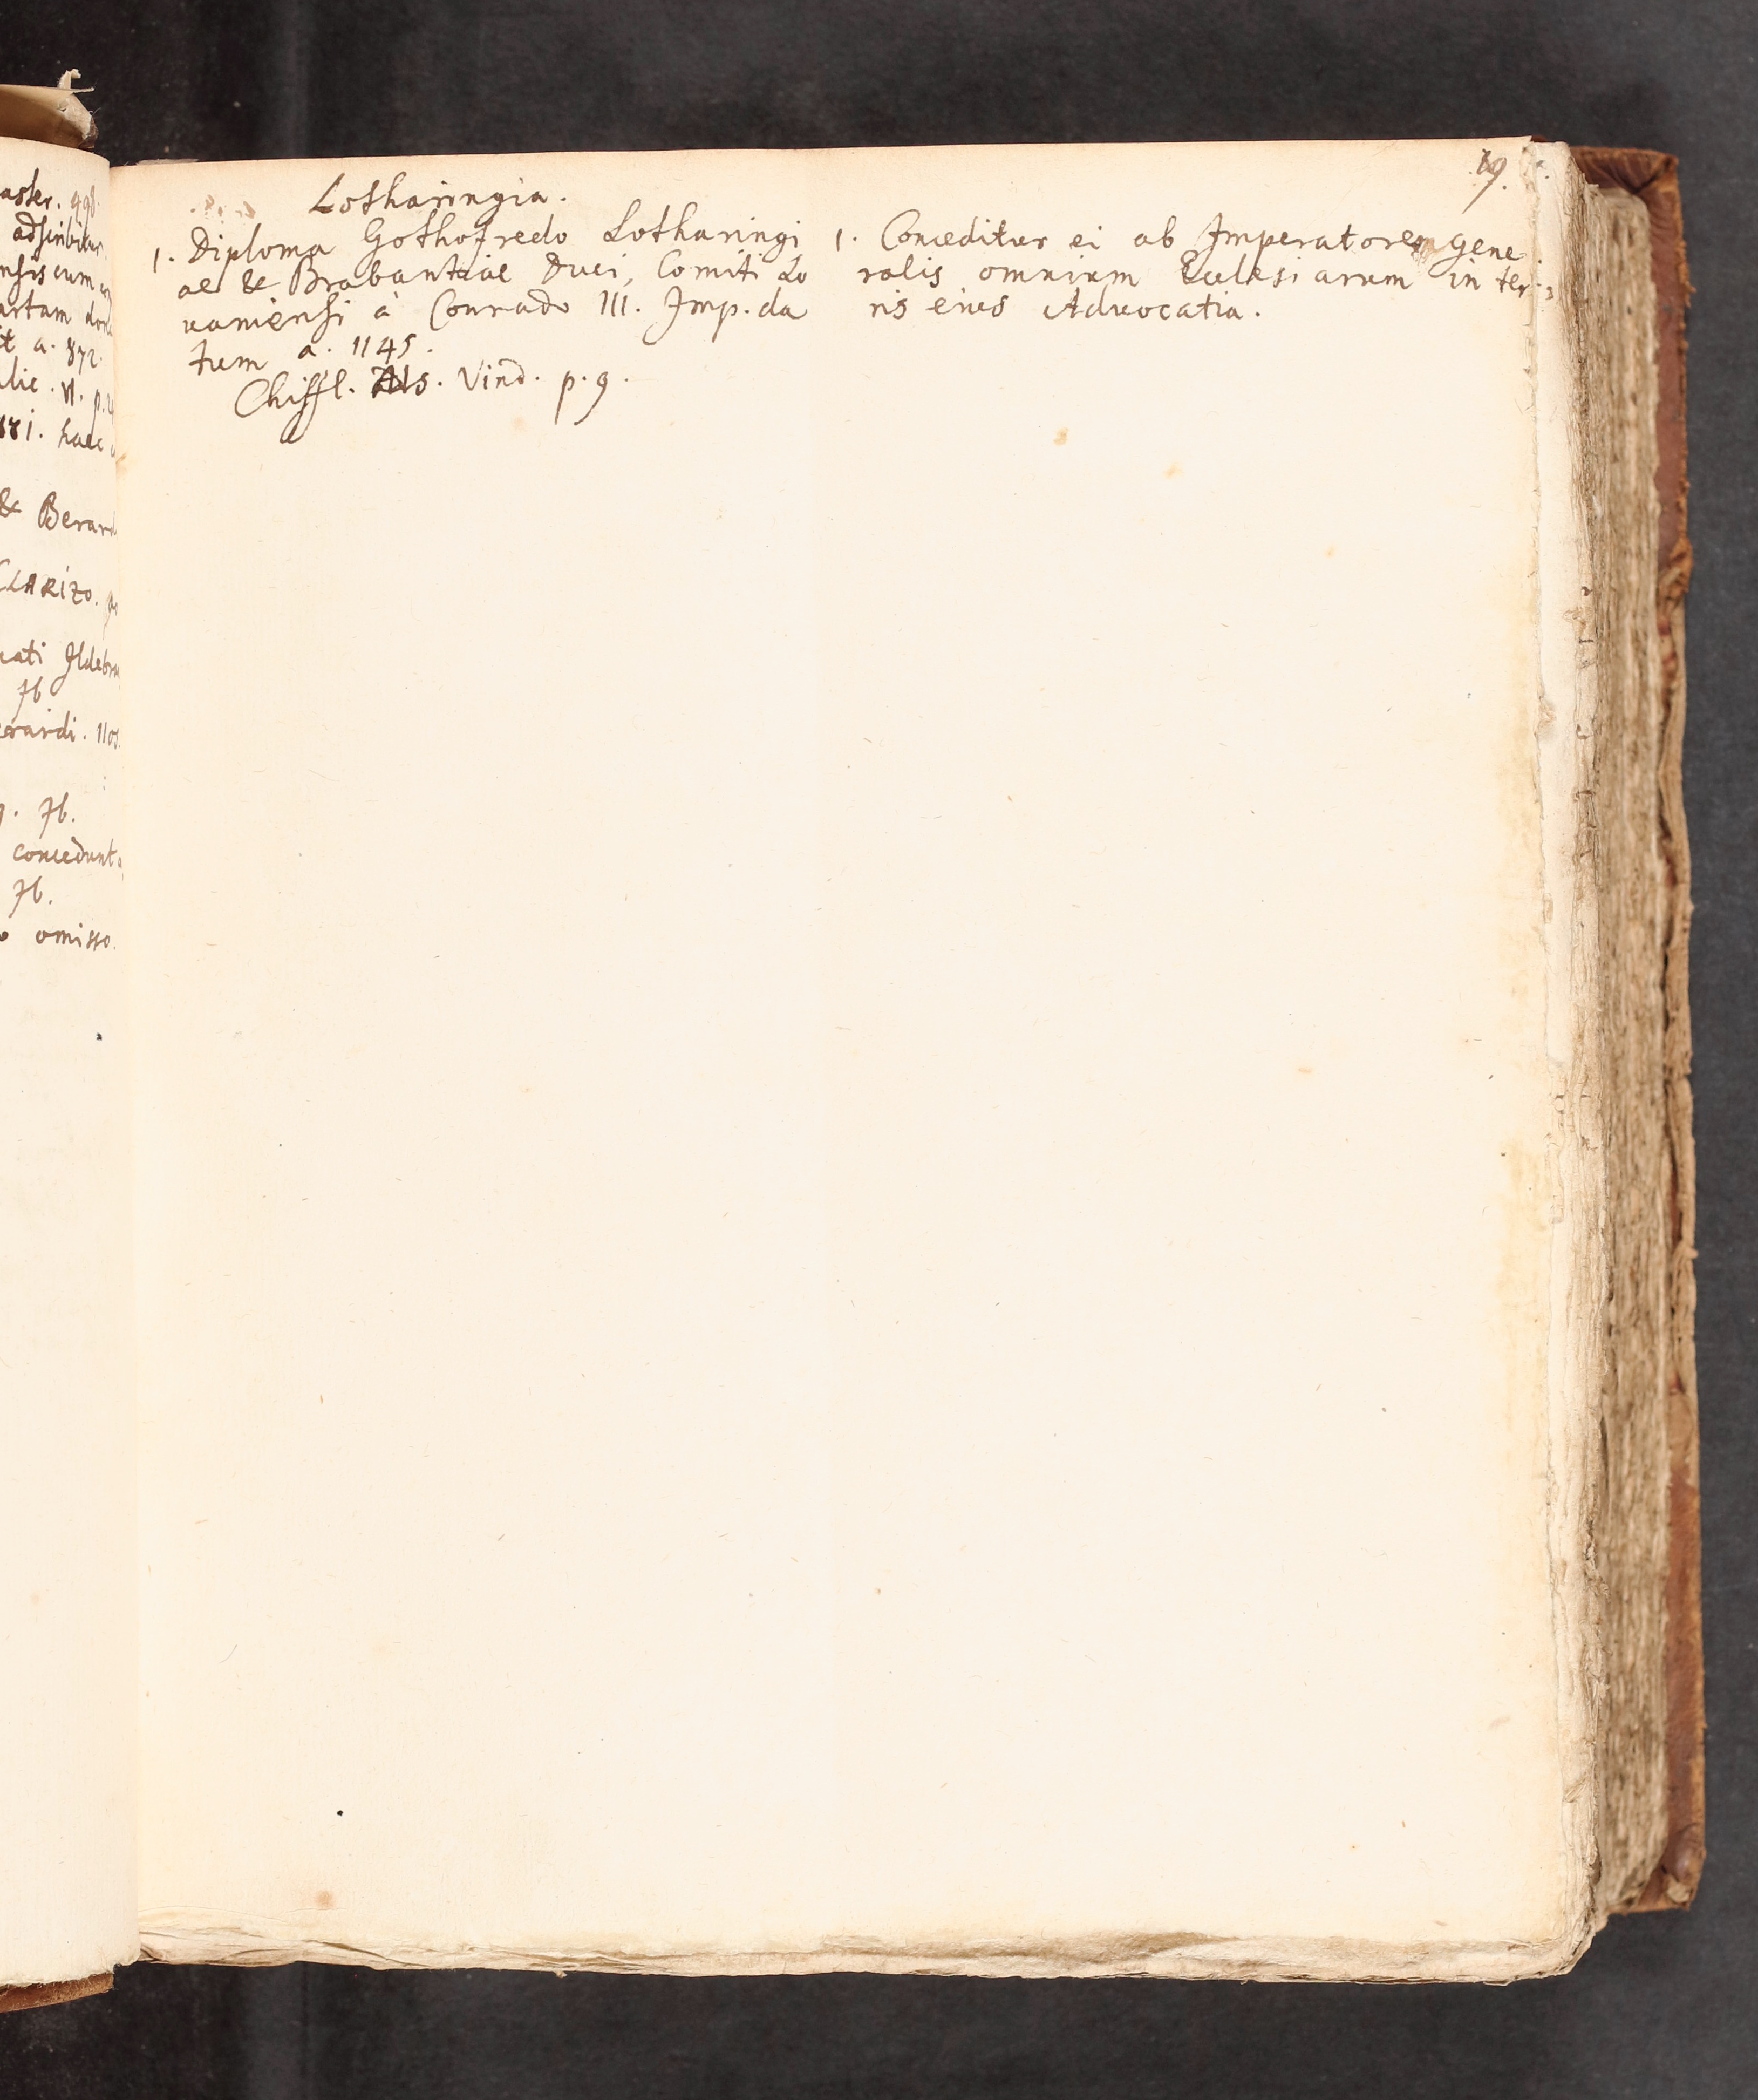 aster. 998.
adscribitur
ensis cum
artam
it a. 872.
p.
181. haec
& Berar
CLARIZO.
Ildebra
Ib
erardi. 110
Ib.
concedunt
Ib.
omisso.
19.
Lotharingia.
1. Diploma Gothofredo Lotharingi
ae & Brabantiae Duci, Comiti Lo
uaniensi à Conrado III. Imp. da
tum a. 1145.
Chiffl. Vind. p. 9.
1. Conceditur ei ab Imperatore gene
ralis omnium Ecclesiarum in ter
ris eius Advocatia.